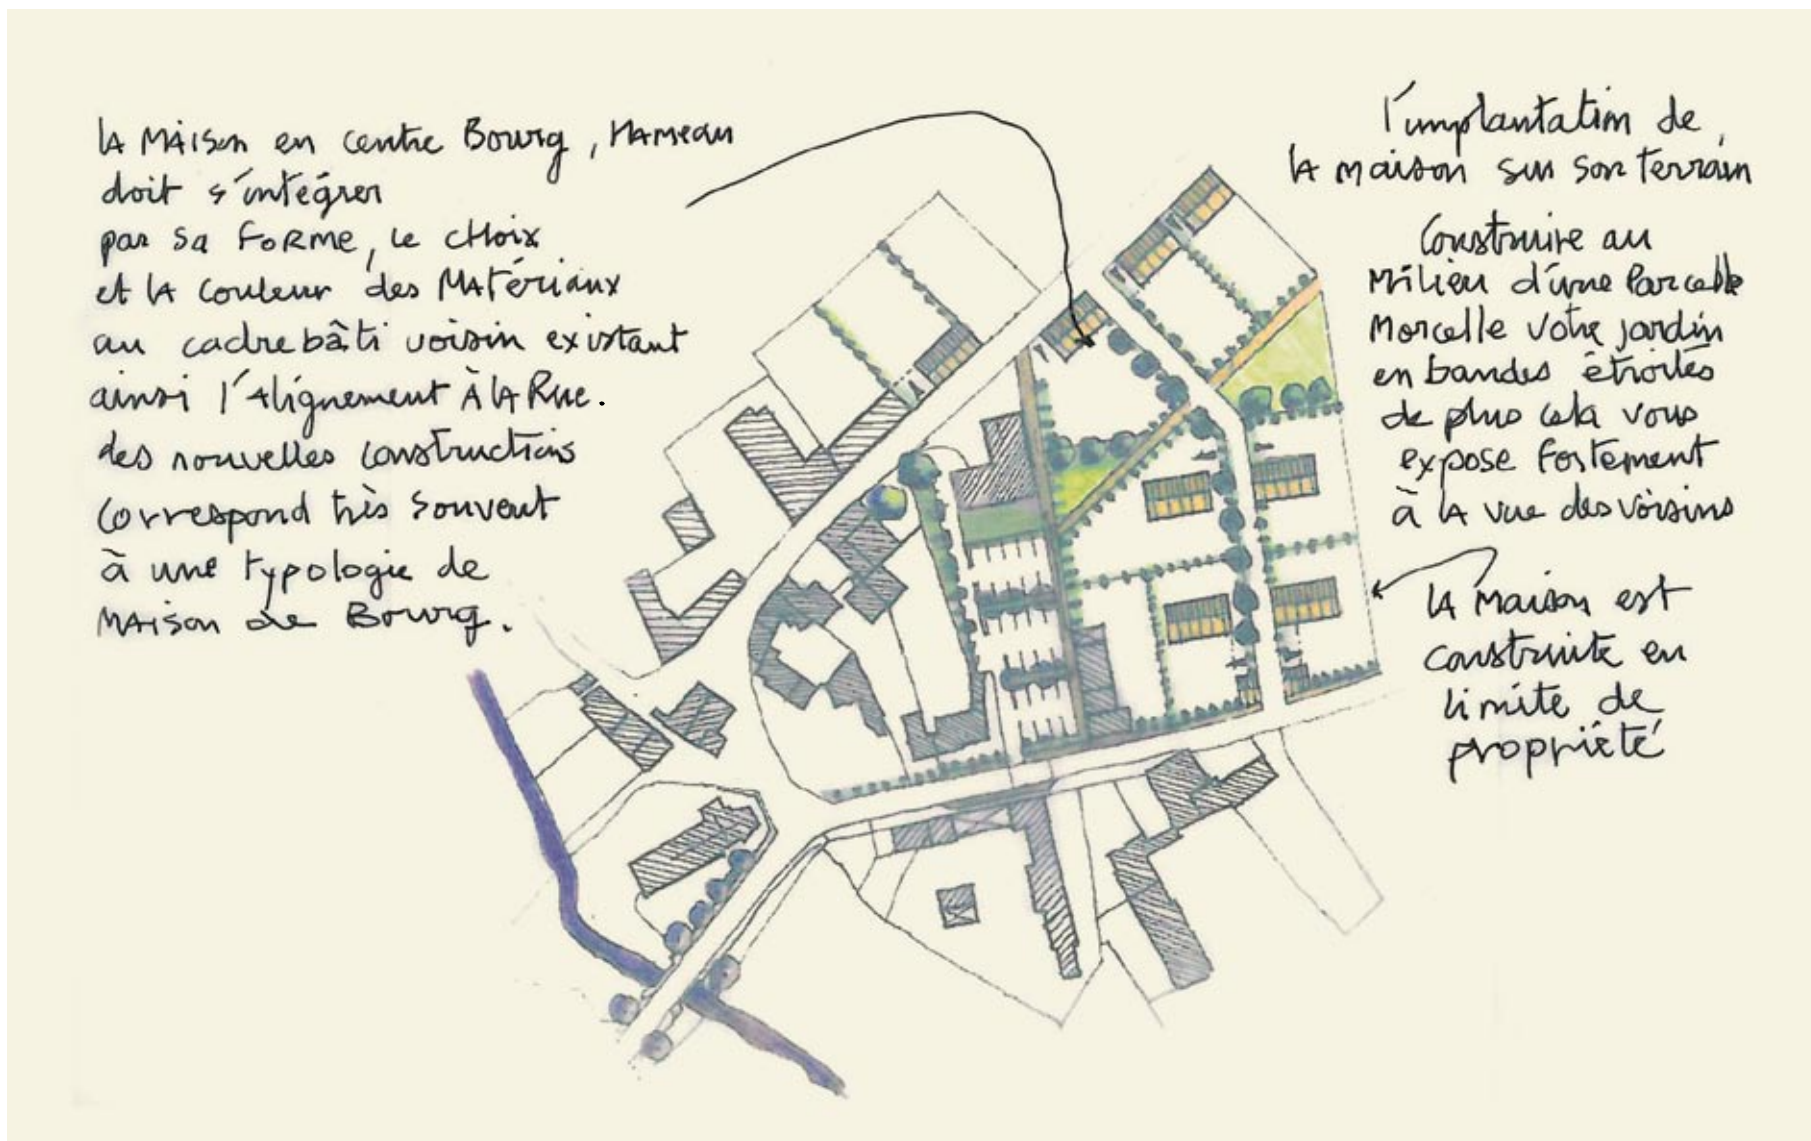 la Maison en centre Bourg, Hameau
doit s'intégrer
par sa forme, le choix
et la couleur des Matériaux
au cadre bâti voisin existant
ainsi l'Alignement à la Rue.
des nouvelles constructions
correspond très souvent
à une typologie de
Maison de Bourg.
l'implantation de
la maison sur son terrain
Construire au
Milieu d'une Parcelle
Morcelle votre jardin
en bandes étroites
de plus cela vous
expose fortement
à la vue des voisins
la Maison est
construite en
limite de
propriété